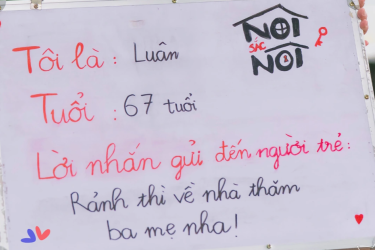 Tôi là : Luân
NƠI
SẮC
NOI
Tuổi : 67 tuổi
Lời nhắn gửi đến người trẻ:
Rảnh thì về nhà thăm
ba mẹ nha!